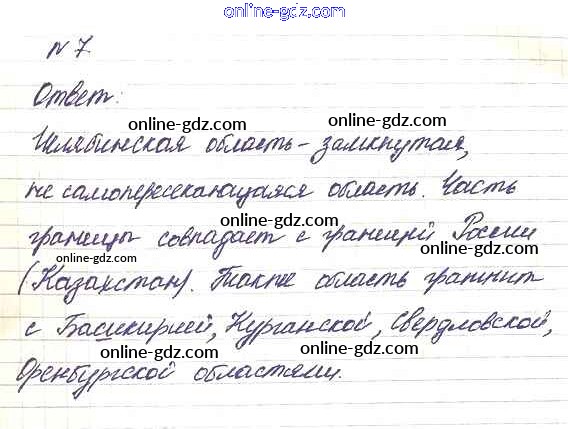 online-gdz.com
N 7.
Ответ:
online-gdz.com online-gdz.com
Челябинская область - замкнутая,
не самопересекающаяся область. Часть
online-gdz.com
границы совпадает с границей России
online-gdz.com online-gdz.com
(Казахстан). Также область граничит
с Башкирией, Курганской, Свердловской,
online-gdz.com online-gdz.com
Оренбургской областями.